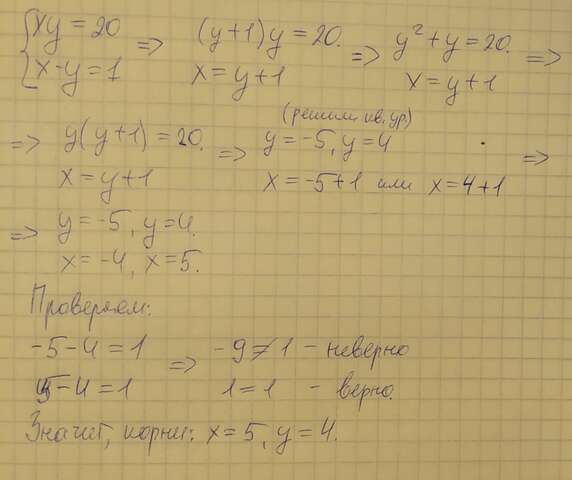 {xy = 20 => (y+1)y = 20. => y² + y = 20. =>
{x - y = 1 x = y+1 x = y+1
(решили кв. ур)
=> y(y+1) = 20. => y = -5, y = 4 =>
x = y+1 x = -5+1 или x = 4+1
=> y = -5, y = 4.
x = -4, x = 5.
Проверяем:
-5 - 4 = 1 => -9 ≠ 1 - неверно
5 - 4 = 1 1 = 1 - верно.
Значит, корни: x = 5, y = 4.